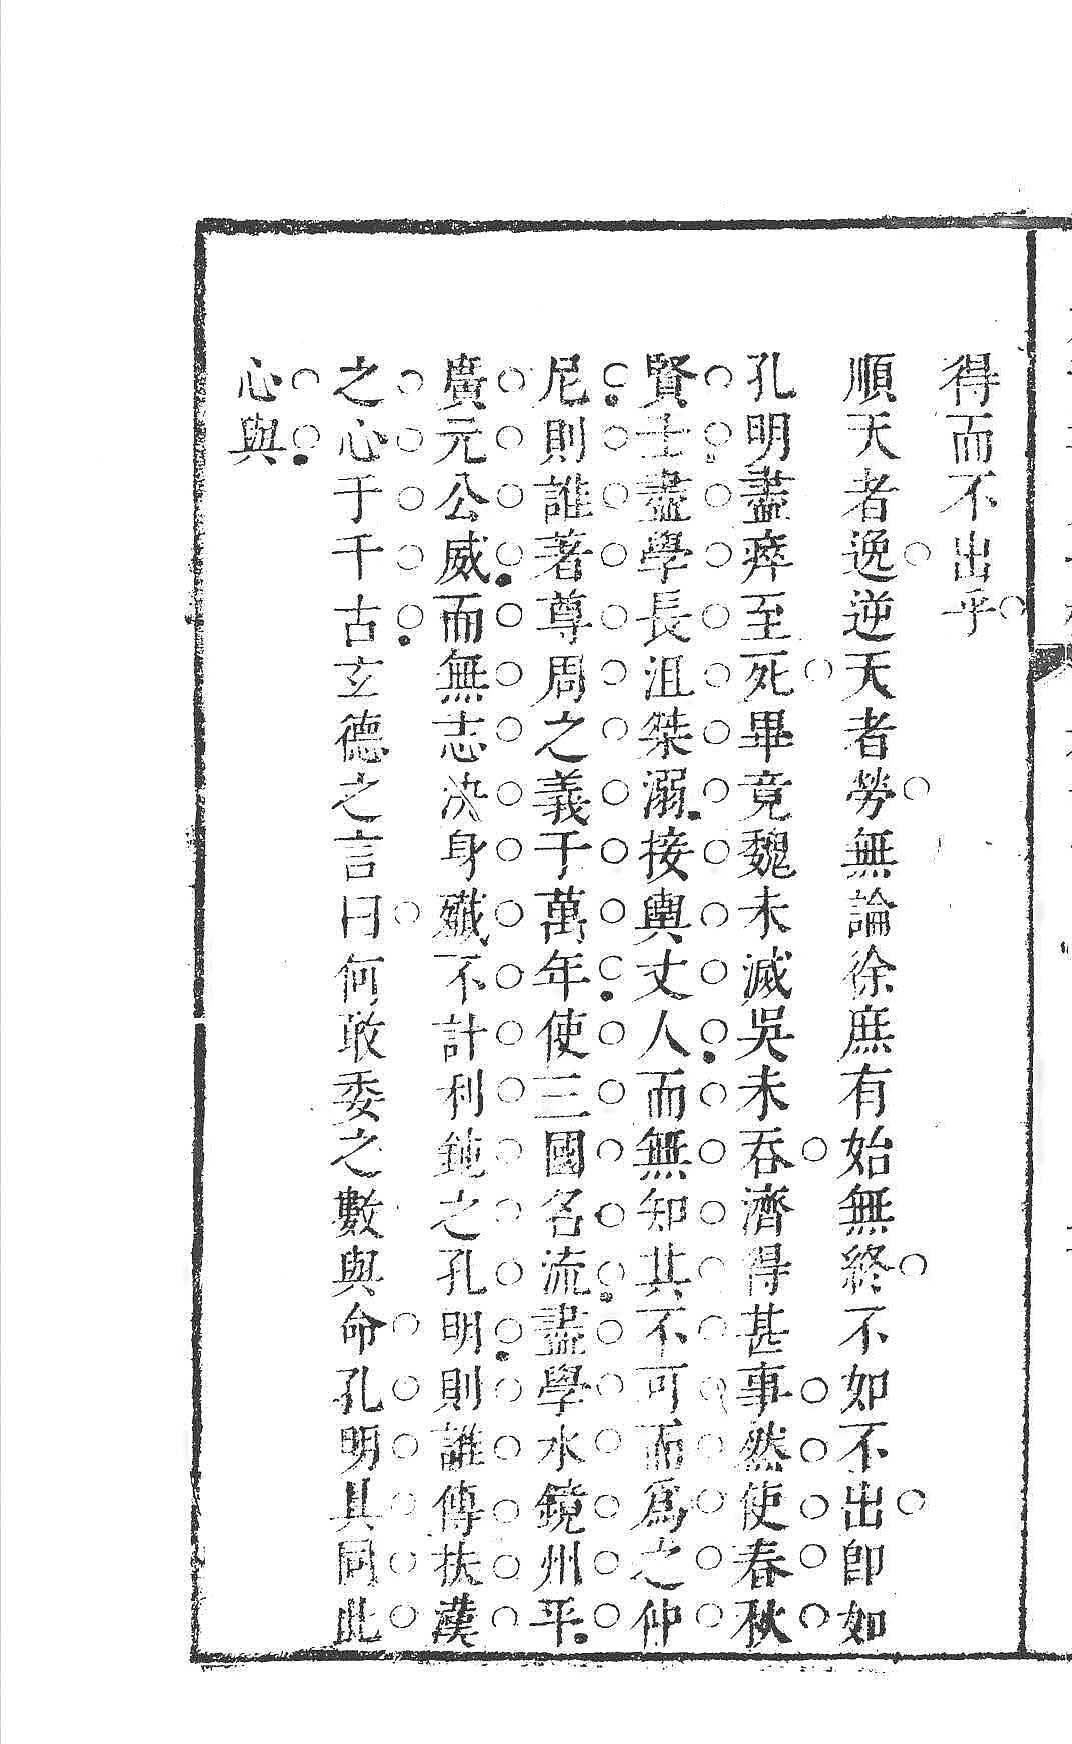 得而不出乎
順天者逸逆天者勞無論徐庶有始無終不如不出卽如
孔明盡瘁至死畢竟魏未滅吳未吞濟得甚事然使春秋
賢士盡學長沮桀溺接輿丈人而無知其不可而爲之仲
尼則誰著尊周之義于萬年使三國名流盡學水鏡州平
廣元公威而無志決身殲不計利鈍之孔明則誰傳扶漢
之心于千古玄德之言曰何敢委之數與命孔明其同此
心與